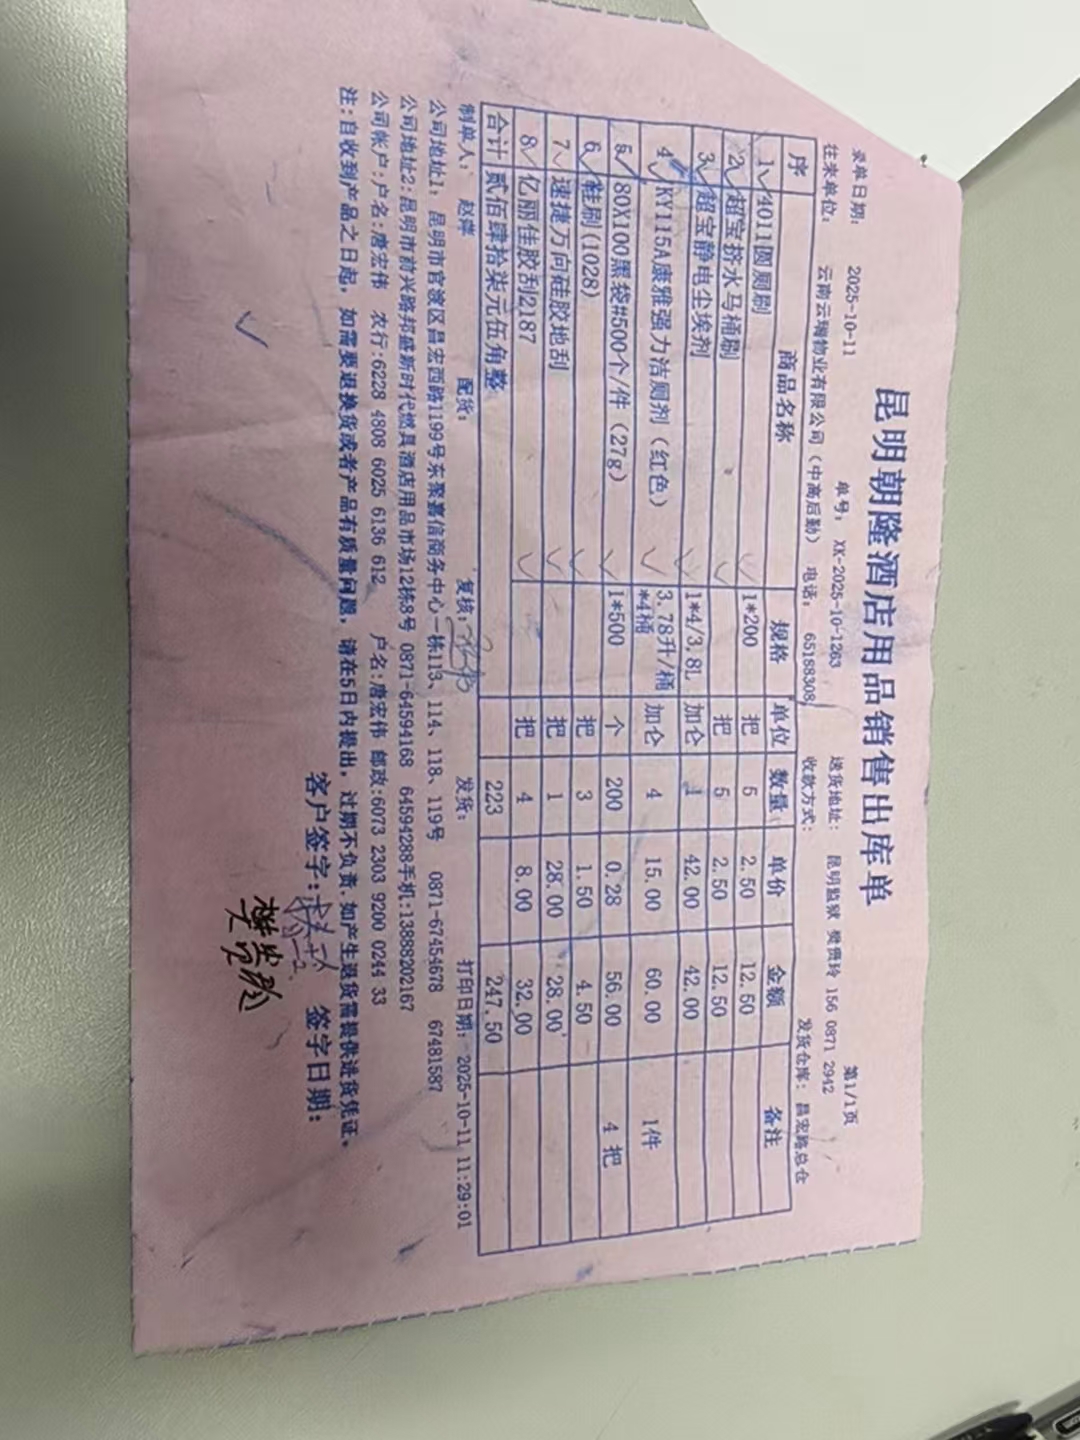 昆明朝隆酒店用品销售出库单
第1/1页
录单日期： 2025-10-11 单号： XK-2025-10-1263 送货地址： 昆明监狱 樊贵玲 156 0871 2942
往来单位： 云南云瑞物业有限公司（中高后勤） 电话： 65188308 收款方式： 发货仓库：昌宏路总仓
序 商品名称 规格 单位 数量 单价 金额 备注
1 4011圆厕刷 1*200 把 5 2.50 12.50
2 超宝挤水马桶刷 把 5 2.50 12.50
3 超宝静电尘埃剂 1*4/3.8L 加仑 1 42.00 42.00
4 KY115A康雅强力洁厕剂（红色） 3.78升/桶*4桶 加仑 4 15.00 60.00 1件
5 80X100黑袋#500个/件（27g） 1*500 个 200 0.28 56.00 4 把
6 鞋刷(1028) 把 3 1.50 4.50
7 速捷万向硅胶地刮 把 1 28.00 28.00
8 亿丽佳胶刮2187 把 4 8.00 32.00
合计 贰佰肆拾柒元伍角整 223 247.50
制单人： 赵萍 配货： 复核： 发货： 打印日期： 2025-10-11 11:29:01
公司地址1： 昆明市官渡区昌宏西路1199号东聚嘉信商务中心一栋113、114、118、119号 0871-67454678 67481587
公司地址2：昆明市前兴路邦盛新时代燃具酒店用品市场12栋8号 0871-64594168 64594288手机：13888202167
公司帐户：户名：唐宏伟 农行：6228 4808 6025 6136 612 户名：唐宏伟 邮政：6073 2303 9200 0244 33
注：自收到产品之日起，如需要退换货或者产品有质量问题，请在5日内提出，过期不负责.如产生退货需提供进货凭证。
客户签字： 签字日期：
樊贵玲